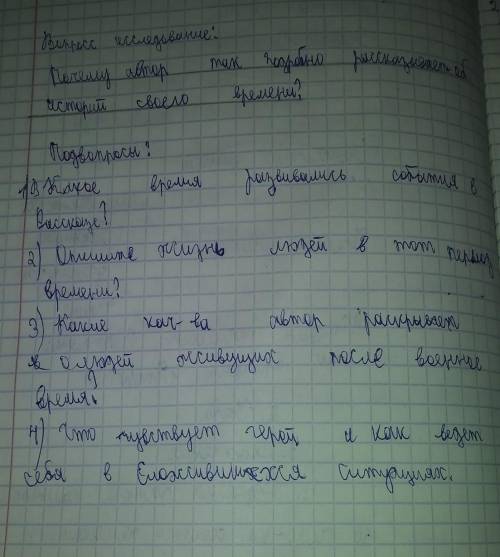 Вопрос исследование:
Почему автор так подробно рассказывает об
истории своего времени?
Подвопросы:
1) В какое время развивались события в
рассказе?
2) Опишите жизнь людей в тот период
времени?
3) Какие кач-ва автор раскрывает
о людей живущих после военное
время?
4) Что чувствует герой и как ведет
себя в сложившихся ситуациях.